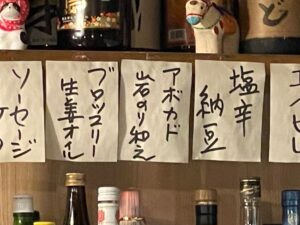 塩辛
納豆
アボカド
岩のり和え
ブロッコリー
生姜オイル
ソーセージ